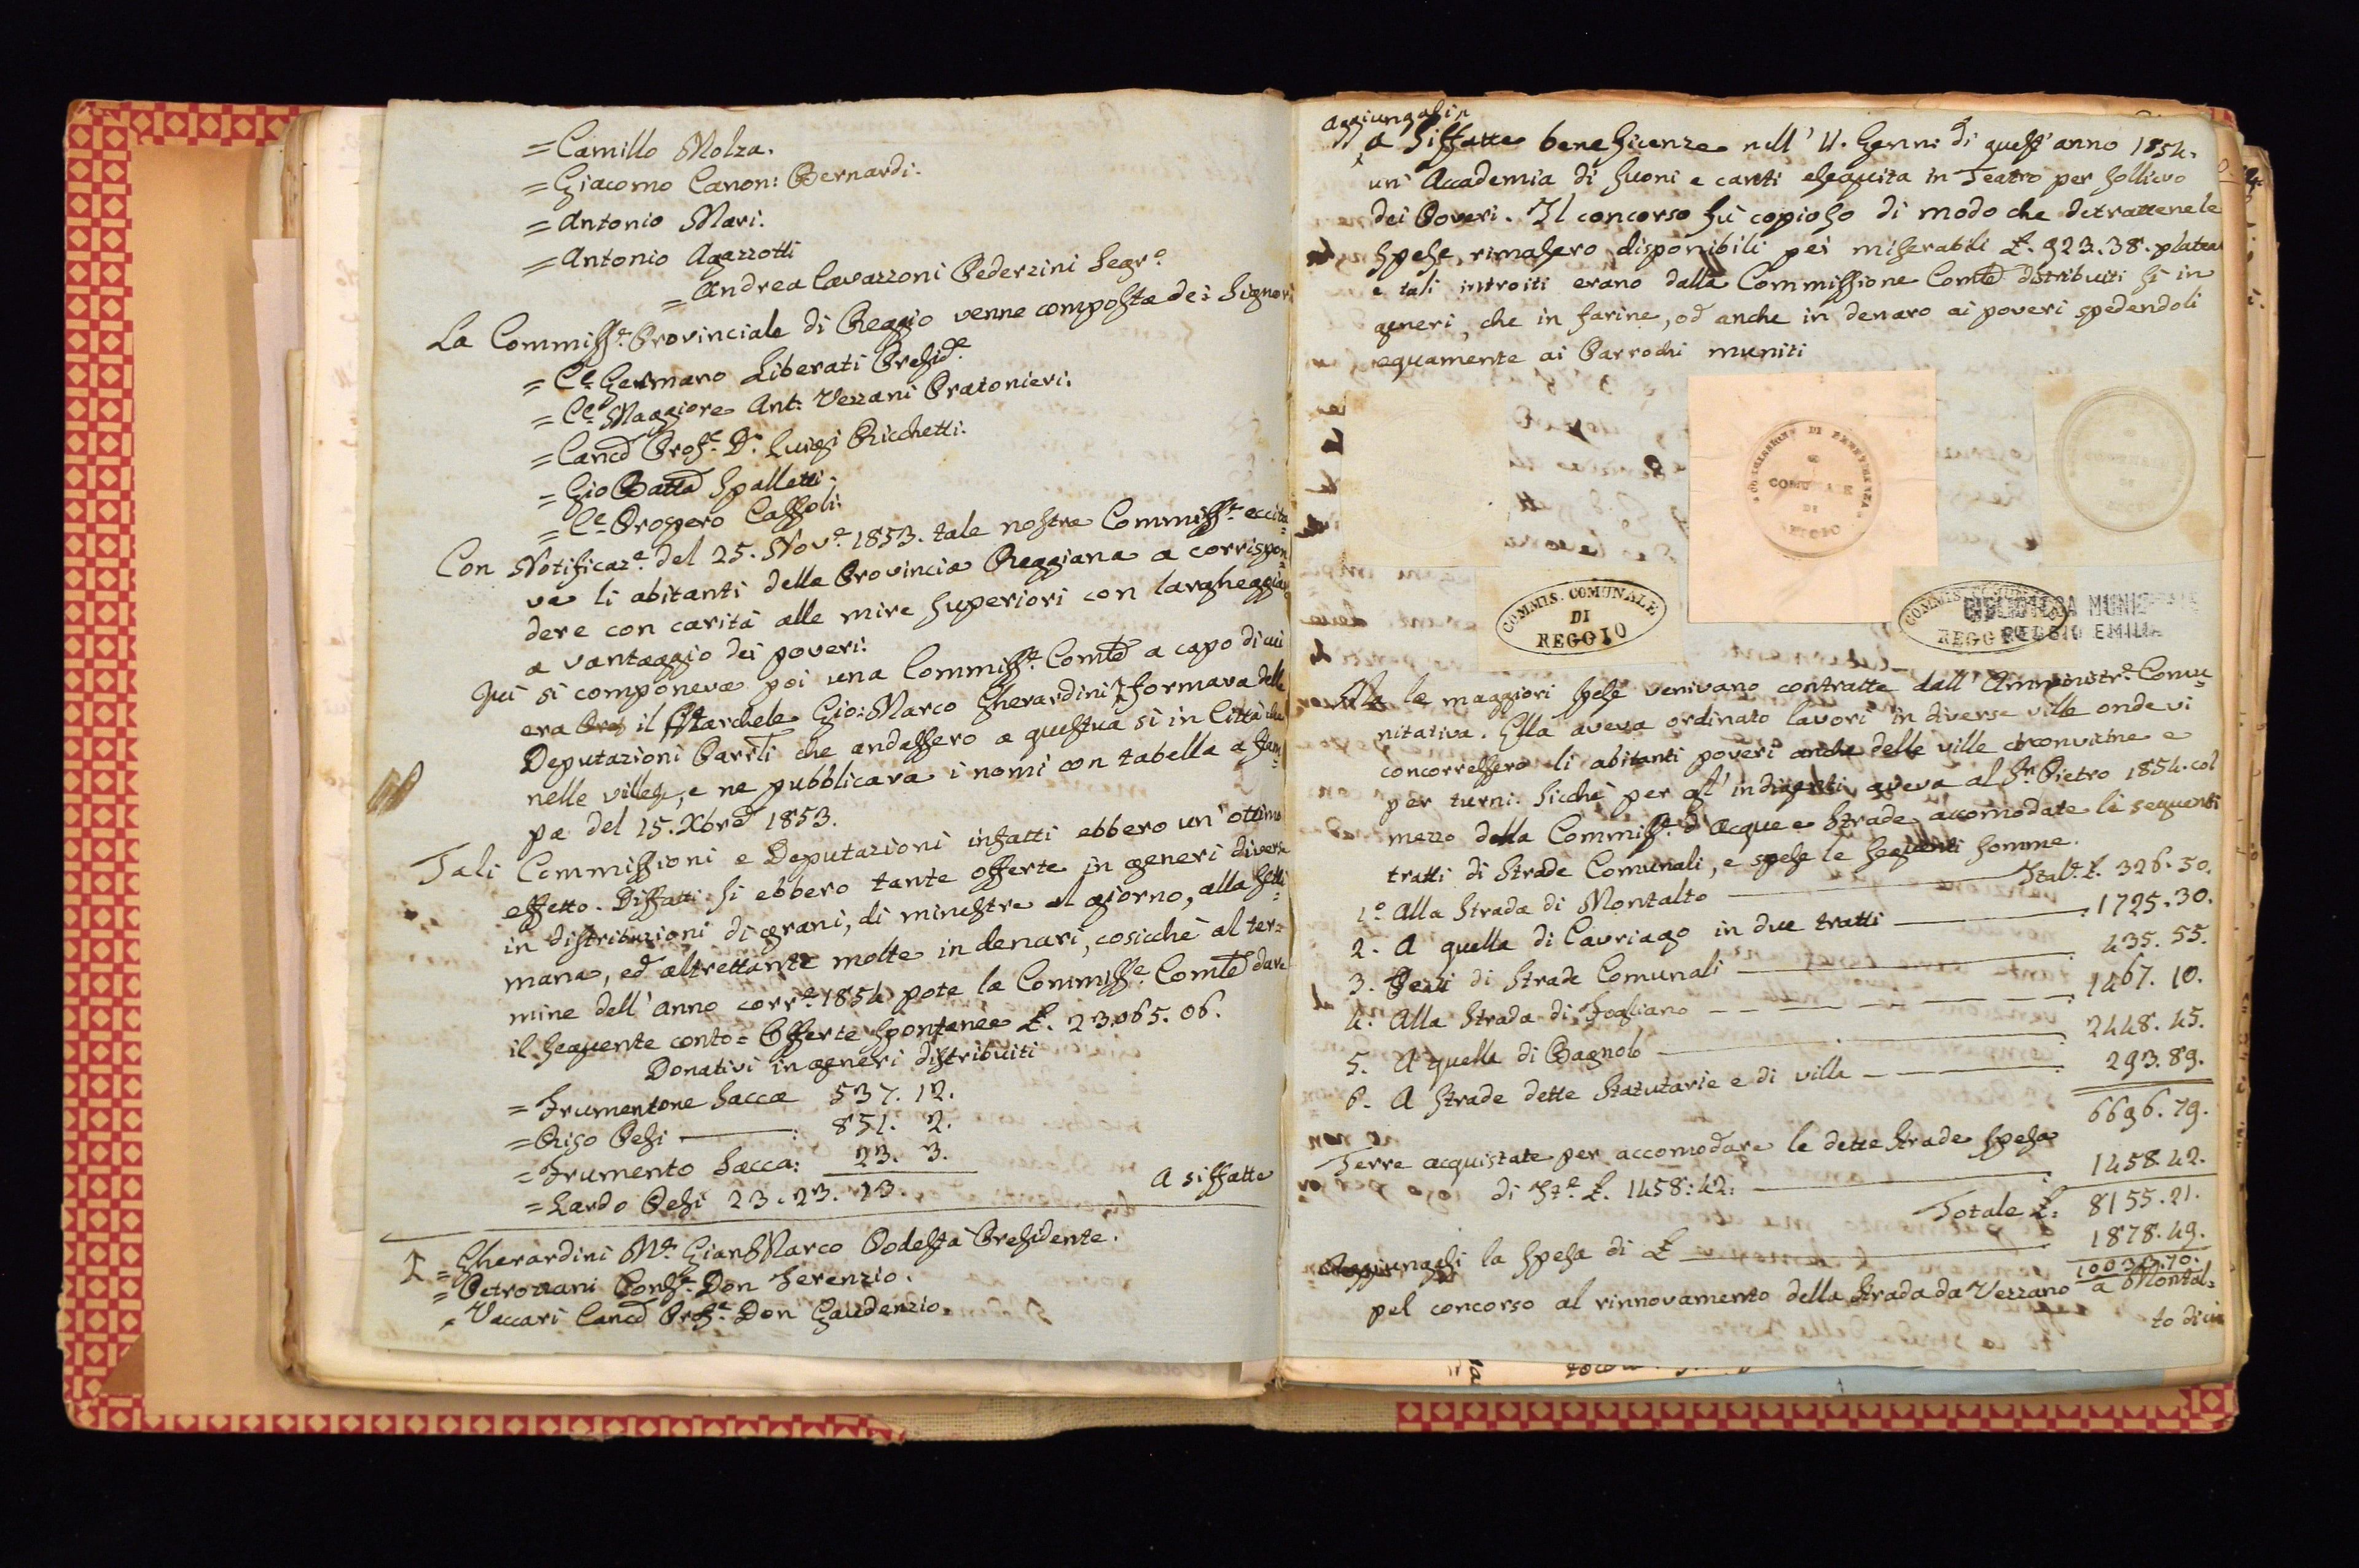 = Camillo Molza.
= Giacomo Canon: Bernardi.
= Antonio Mari.
= Antonio Agazzotti
= Andrea Cavazzoni Pederzini Segr.o
La Commiss.e Provinciale di Reggio venne composta dei Signori
= C.e Germano Liberati Presid.e
= C.e Maggiore Ant: Vezzani Pratonieri.
= Canco Prof.e D.r Luigi Ricchetti.
= Gio Batta Spalletti.
= C.e Prospero Cassoli.
Con Notificaz.e del 25. Nov.e 1853. tale nostra Commiss.e eccita=
va li abitanti della Provincia Reggiana a corrispon=
dere con carità alle mire superiori con largheggiare
a vantaggio dei poveri.
Quì si componeva poi una Commiss.e Comle a capo di cui
era il Marchese Gio: Marco Gherardini formava delle
Deputazioni Parrli che andassero a questua sì in Città che
nelle ville, e ne pubblicava i nomi con tabella a stam=
pa del 15. Xbre 1853.
Tali Commissioni e Deputazioni infatti ebbero un' ottimo
effetto. Diffatti si ebbero tante offerte in generi diverse
in distribuzioni di grani, di minestre al giorno, alla setti=
mana, ed altrettante molte in denari, cosicchè al ter=
mine dell' anno corr.e 1854 pote la Commiss.e Comle dare
il seguente conto = Offerte spontanee £. 23.065.06.
Donativi in generi distribuiti
= Frumentone Sacca 537. 12.
= Riso Pesi : 851. 2.
= Frumento Sacca: 23. 3.
= Lardo Pesi 23. 23. 13.
A siffatte
= Gherardini M.e Gian Marco Podestà Presidente.
= Petrozzani Cons.e Don Terenzio.
= Vaccari Canco Prof.e Don Gaudenzio.
Aggiungasi
a siffatte beneficenze nell' 11. Genn: di quest' anno 1854.
un' Accademia di suoni e canti eseguita in Teatro per sollievo
dei Poveri. Il concorso fù copioso di modo che detrattene le
spese, rimasero disponibili pei miserabili £. 923.38. platea
e tali introiti erano dalla Commissione Comle distribuiti sì in
generi, che in farine, od anche in denaro ai poveri spedendoli
equamente ai Parrochi muniti
COMMISSIONE DI BENEFICENZA
COMUNALE
DI
REGGIO
COMMIS. COMUNALE
DI
REGGIO
COMMIS. COMUNALE
REGGIO
BIBLIOTECA MUNICIPALE
REGGIO EMILIA
Ma le maggiori spese venivano contratte dall' Amministr.e Comu=
nitativa. Ella aveva ordinato lavori in diverse ville onde vi
concorressero li abitanti poveri anche delle ville circonvicine e
per turni. Sicchè per gl' indigenti aveva al Sn Pietro 1854. col
mezzo della Commiss.e d' acque e Strade accomodate le seguenti
tratti di Strade Comunali, e spese le seguenti somme.
1.o Alla Strada di Montalto Ital.e £. 326.50.
2. A quella di Cavriago in due tratti : 1725.30.
3. Pezzi di Strade Comunali 435.55.
4. Alla Strada di Fogliano 1467.10.
5. A quella di Bagnolo : 2448.45.
6. A Strade dette Statutarie e di ville : 293.89.
6696.79.
Terre acquistate per accomodare le dette Strade spesa
di It.e £. 1458:42: 1458.42.
Totale £. 8155.21.
Aggiungasi la spesa di £ 1878.49.
10033.70.
pel concorso al rinnovamento della Strada da Vezzano a Montal=
to di cui